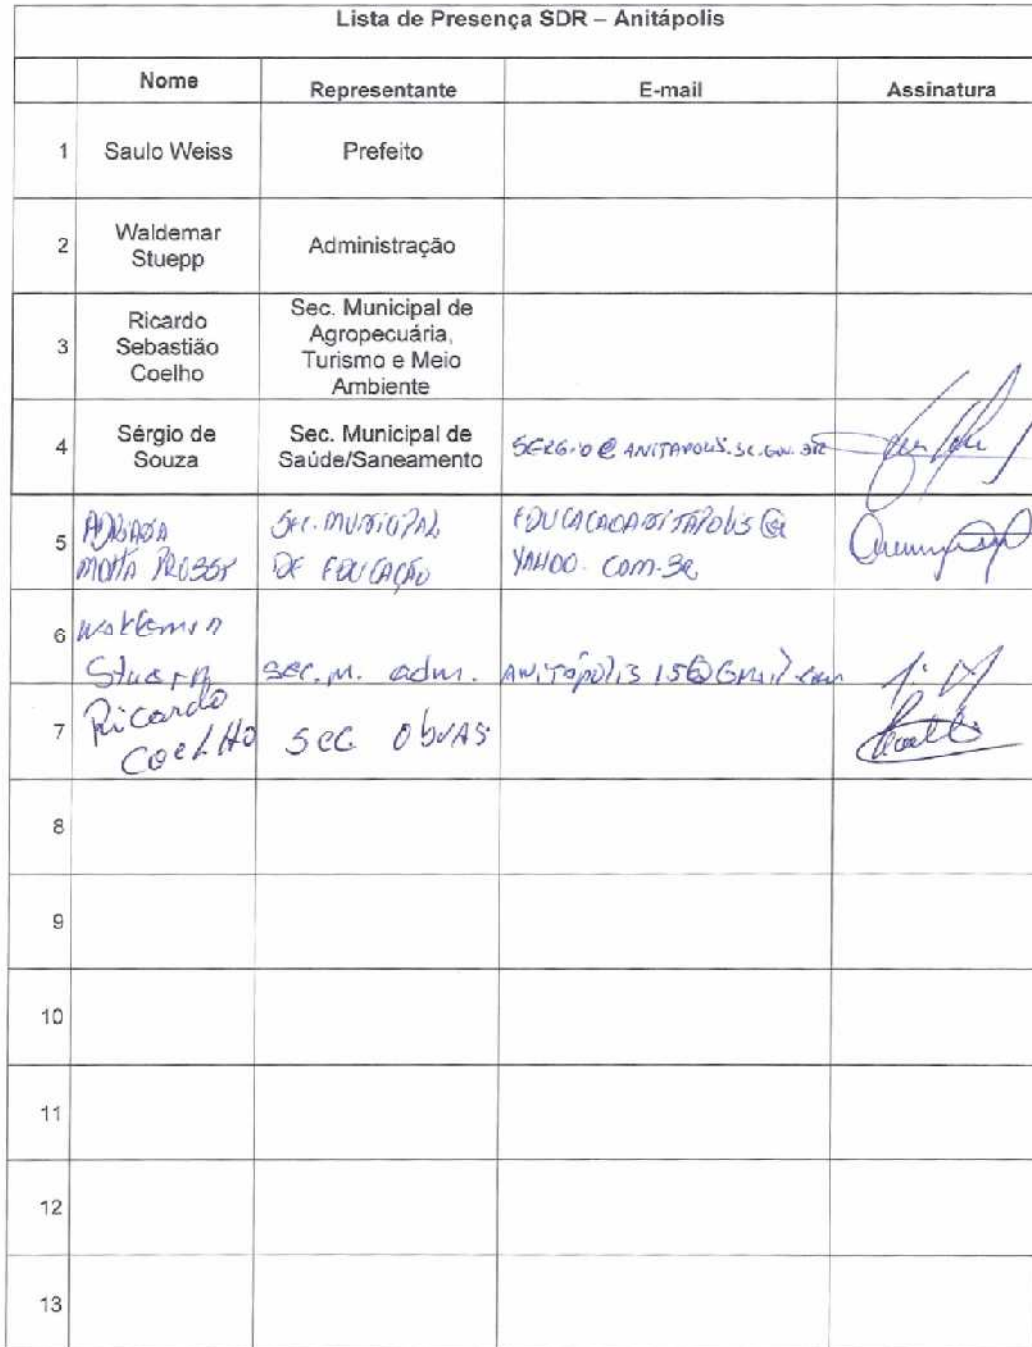 Lista de Presença SDR – Anitápolis
Nome Representante E-mail Assinatura
1 Saulo Weiss Prefeito
2 Waldemar Stuepp Administração
3 Ricardo Sebastião Coelho Sec. Municipal de Agropecuária, Turismo e Meio Ambiente
4 Sérgio de Souza Sec. Municipal de Saúde/Saneamento SERGIO@ANITAPOLIS.SC.GOV.BR
5 ADRIANA MOTTA SEC. MUNICIPAL DE EDUCAÇÃO EDUCACAOANITÁPOLIS@YAHOO.COM.BR
6 sec. m. adm. ANITÁPOLIS15@GMAIL.COM
7 Ricardo COELHO sec ObrAS
8
9
10
11
12
13